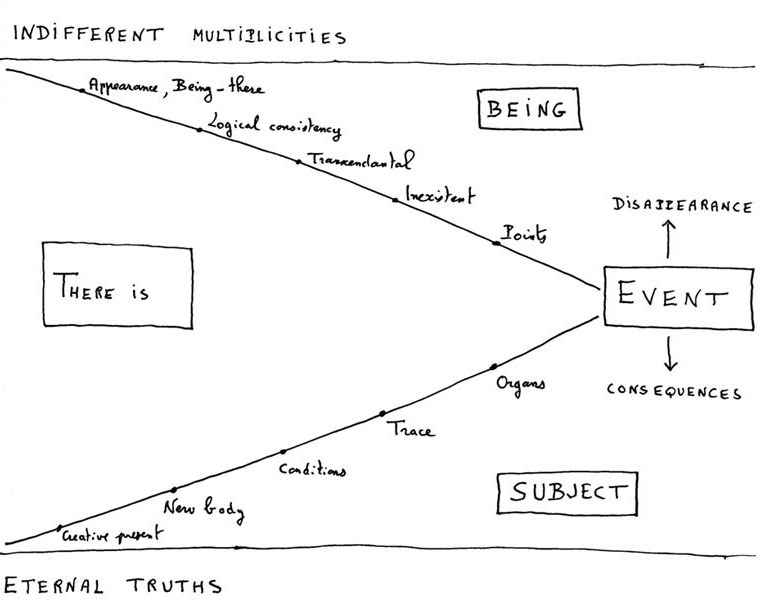 INDIFFERENT MULTIPLICITIES
Appearance, Being-there
BEING
Logical consistency
Transcendantal
Inexistent
DISAPPEARANCE
Points
THERE is
EVENT
Organs
CONSEQUENCES
Trace
Conditions
SUBJECT
New body
Creative present
ETERNAL TRUTHS